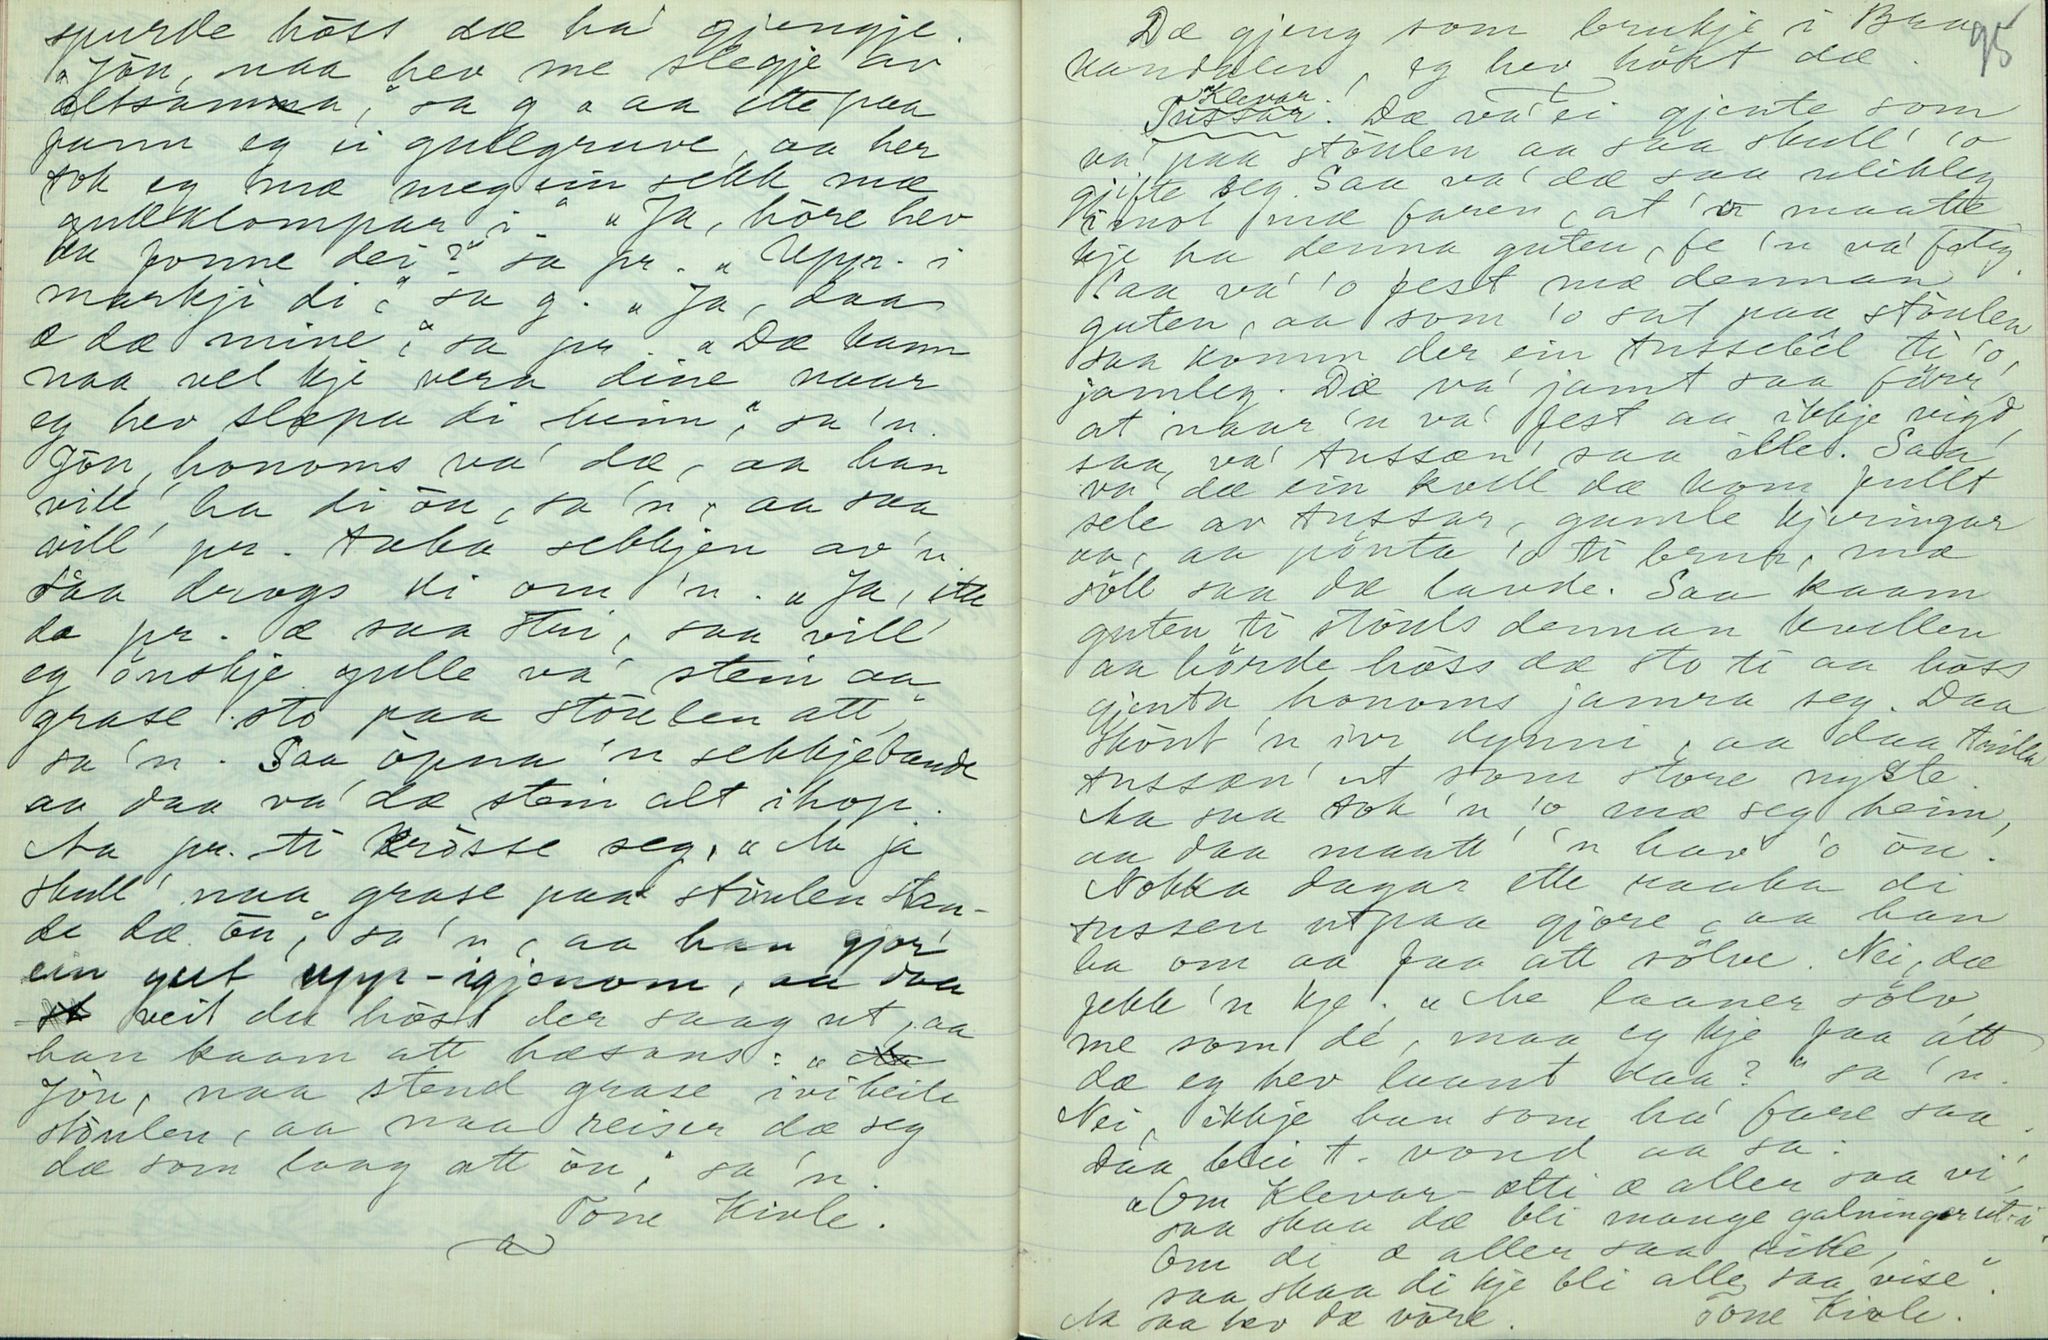 spurde hòss dæ ha' gjengje.
"Jón, naa hev me slegje av
altsamma," sa g "aa ette paa
fann eg ei gullgruve, aa her
tok eg mæ meg ein sekk mæ
gullklompar i." "Ja, hòre hev
du fonne dei?" sa pr. "Upp i
markji di," sa g. "Ja, daa
æ dæ mine," sa pr. "Dæ kann
naa vel kje vera dine naar
eg hev slepa di heim," sa 'n.
Jón, honoms va' dæ, aa han
vill' ha di òn, sa 'n, aa saa
vill' pr. taka sekkjen av 'n.
Saa drogs di om 'n. "Ja, ette
da pr. æ saa stri, saa vill'
eg ònskje gulle va' stein aa
grase sto paa stòulen att,"
sa 'n. Saa òpna 'n sekkjebande
aa daa va' dæ stein alt ihop.
Aa pr. ti kròsse seg, "Aa ja
skull' naa grase paa stòulen stan-
de dæ òn," sa 'n, aa han gjor'
ein gut upp-igjenom, aa daa
veit du hòss der saag ut, aa
han kaam att hæsans: "
Jón, naa stend grase ivi heile
stòulen, aa naa reiser dæ seg
dæ som laag att òn," sa 'n.
Tóne Kivle.
95
Dæ gjeng som brukje i Bra
kandalen, eg hev hòkt dæ.
Klevar.
Tussar. Dæ va' ei gjente som
va' paa stòulen aa saa skull' 'o
gjifte seg. Saa va' dæ saa ulikleg
imot mæ faren, at 'o maatte
kje ha denna guten, fe 'n va' fatig.
Saa va' 'o fest mæ denman
guten, aa som 'o sat paa stòulen
saa komm der ein tussebél ti 'o,
jamleg. Dæ va' jamt saa fòrr,
at naar 'n va' fest aa ikkje vigd,
saa va' tussan' saa ille. Saa
va' dæ ein kvell dæ kom fullt
sele av tussar, gamle kjeringar
aa, aa pònta 'o ti brur, mæ
sòlv saa dæ lavde. Saa kaam
guten ti stòuls denman kvellen
aa hòrde hòss dæ sto ti aa hòss
gjenta honoms jamra seg. Daa
skòut 'n ivi dynni, aa daa trilla
tussan' ut som store nyste.
Aa saa tok 'n 'o mæ seg heim,
aa daa maatt' 'n hav' 'o òn.
Nokka dagar ette raaka di
tussen utpaa gjore, aa han
ba om aa faa att sòlve. Nei, dæ
fekk 'n kje. "Me laaner sòlv
me som dé, maa eg kje faa att
dæ eg hev laant daa?" sa 'n.
Nei, ikkje han som ha' fare saa.
Daa blei t. vond aa sa:
"Om Klevar-ætti æ aller saa vi',
saa skaa dæ bli mange galningar ut-i
Om di æ aller saa rike,
saa skaa di kje bli alle saa vise."
Aa saa hev dæ vòre. Tone Kivle.